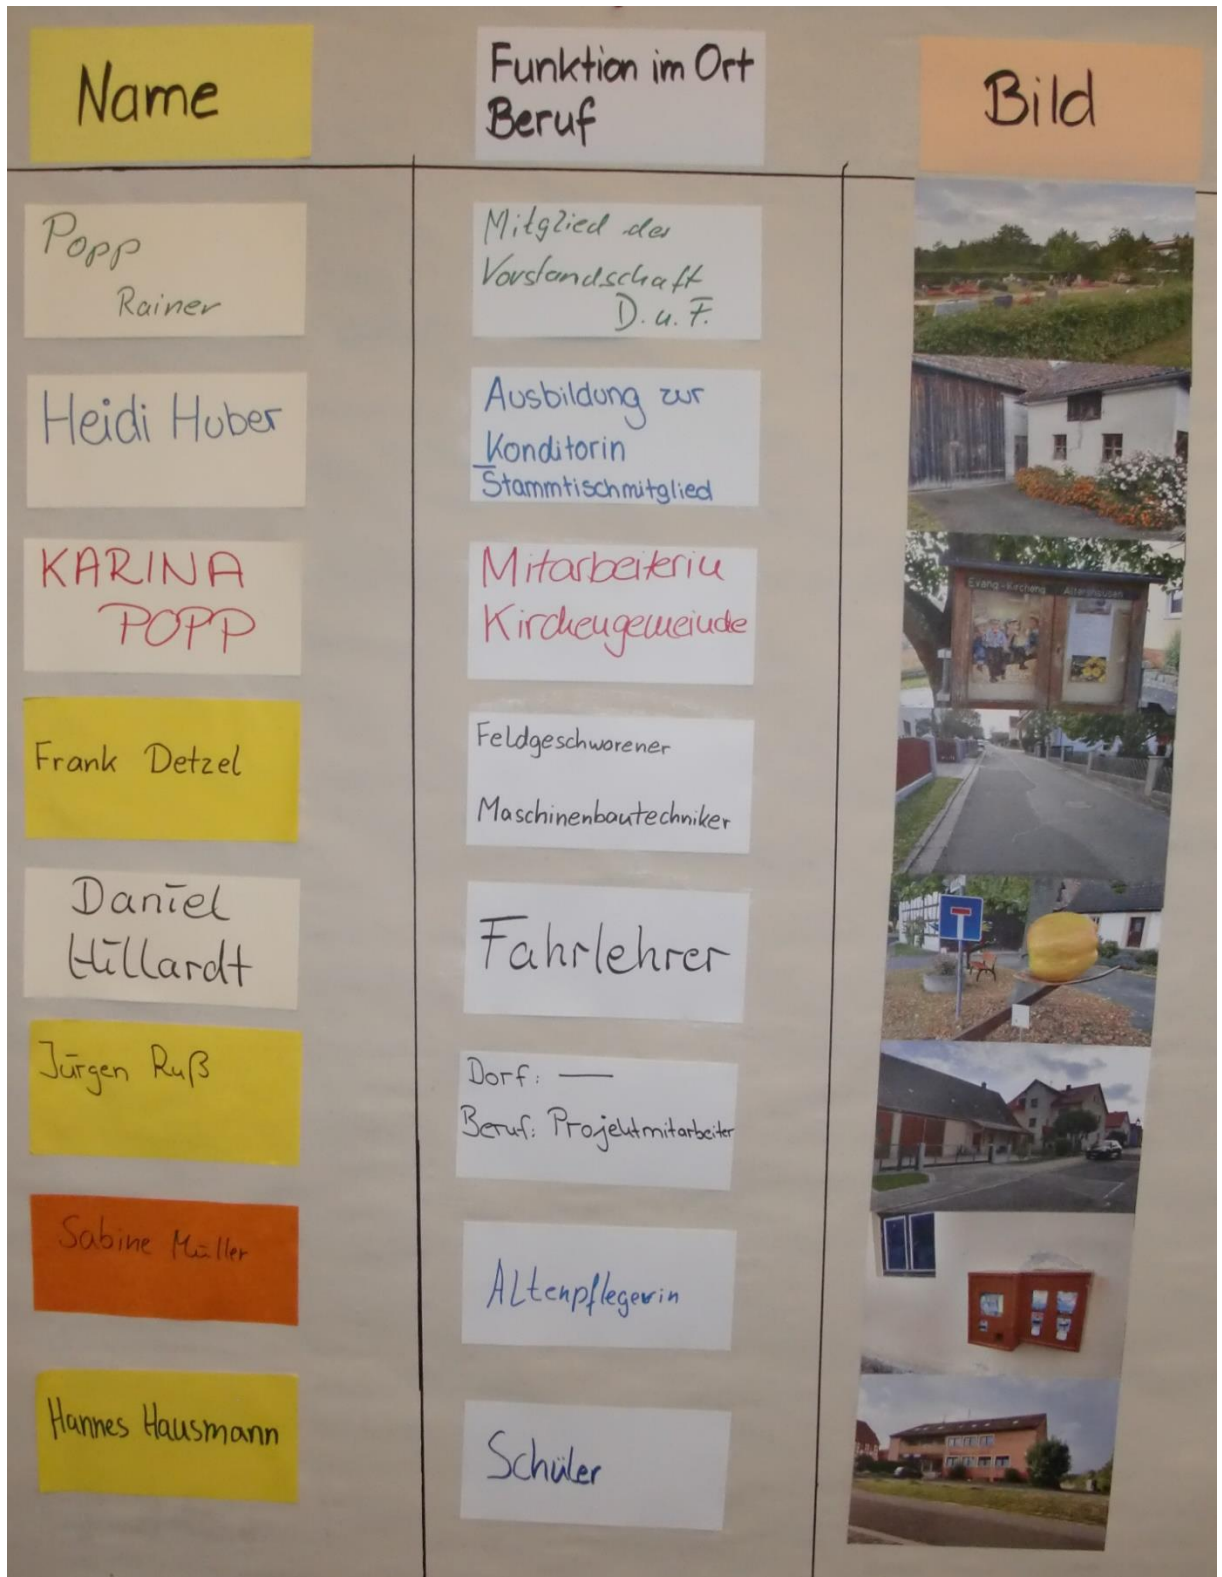 Name
Funktion im Ort
Beruf
Bild
Popp
Rainer
Mitglied der
Vorstandschaft
D. u. F.
Heidi Huber
Ausbildung zur
Konditorin
Stammtischmitglied
KARINA
POPP
Mitarbeiterin
Kirchengemeinde
Evang.-Kircheng. Altershausen
Frank Detzel
Feldgeschworener
Maschinenbautechniker
Daniel
Hillardt
Fahrlehrer
Jürgen Ruß
Dorf: —
Beruf: Projektmitarbeiter
Sabine Müller
Altenpflegerin
Hannes Hausmann
Schüler